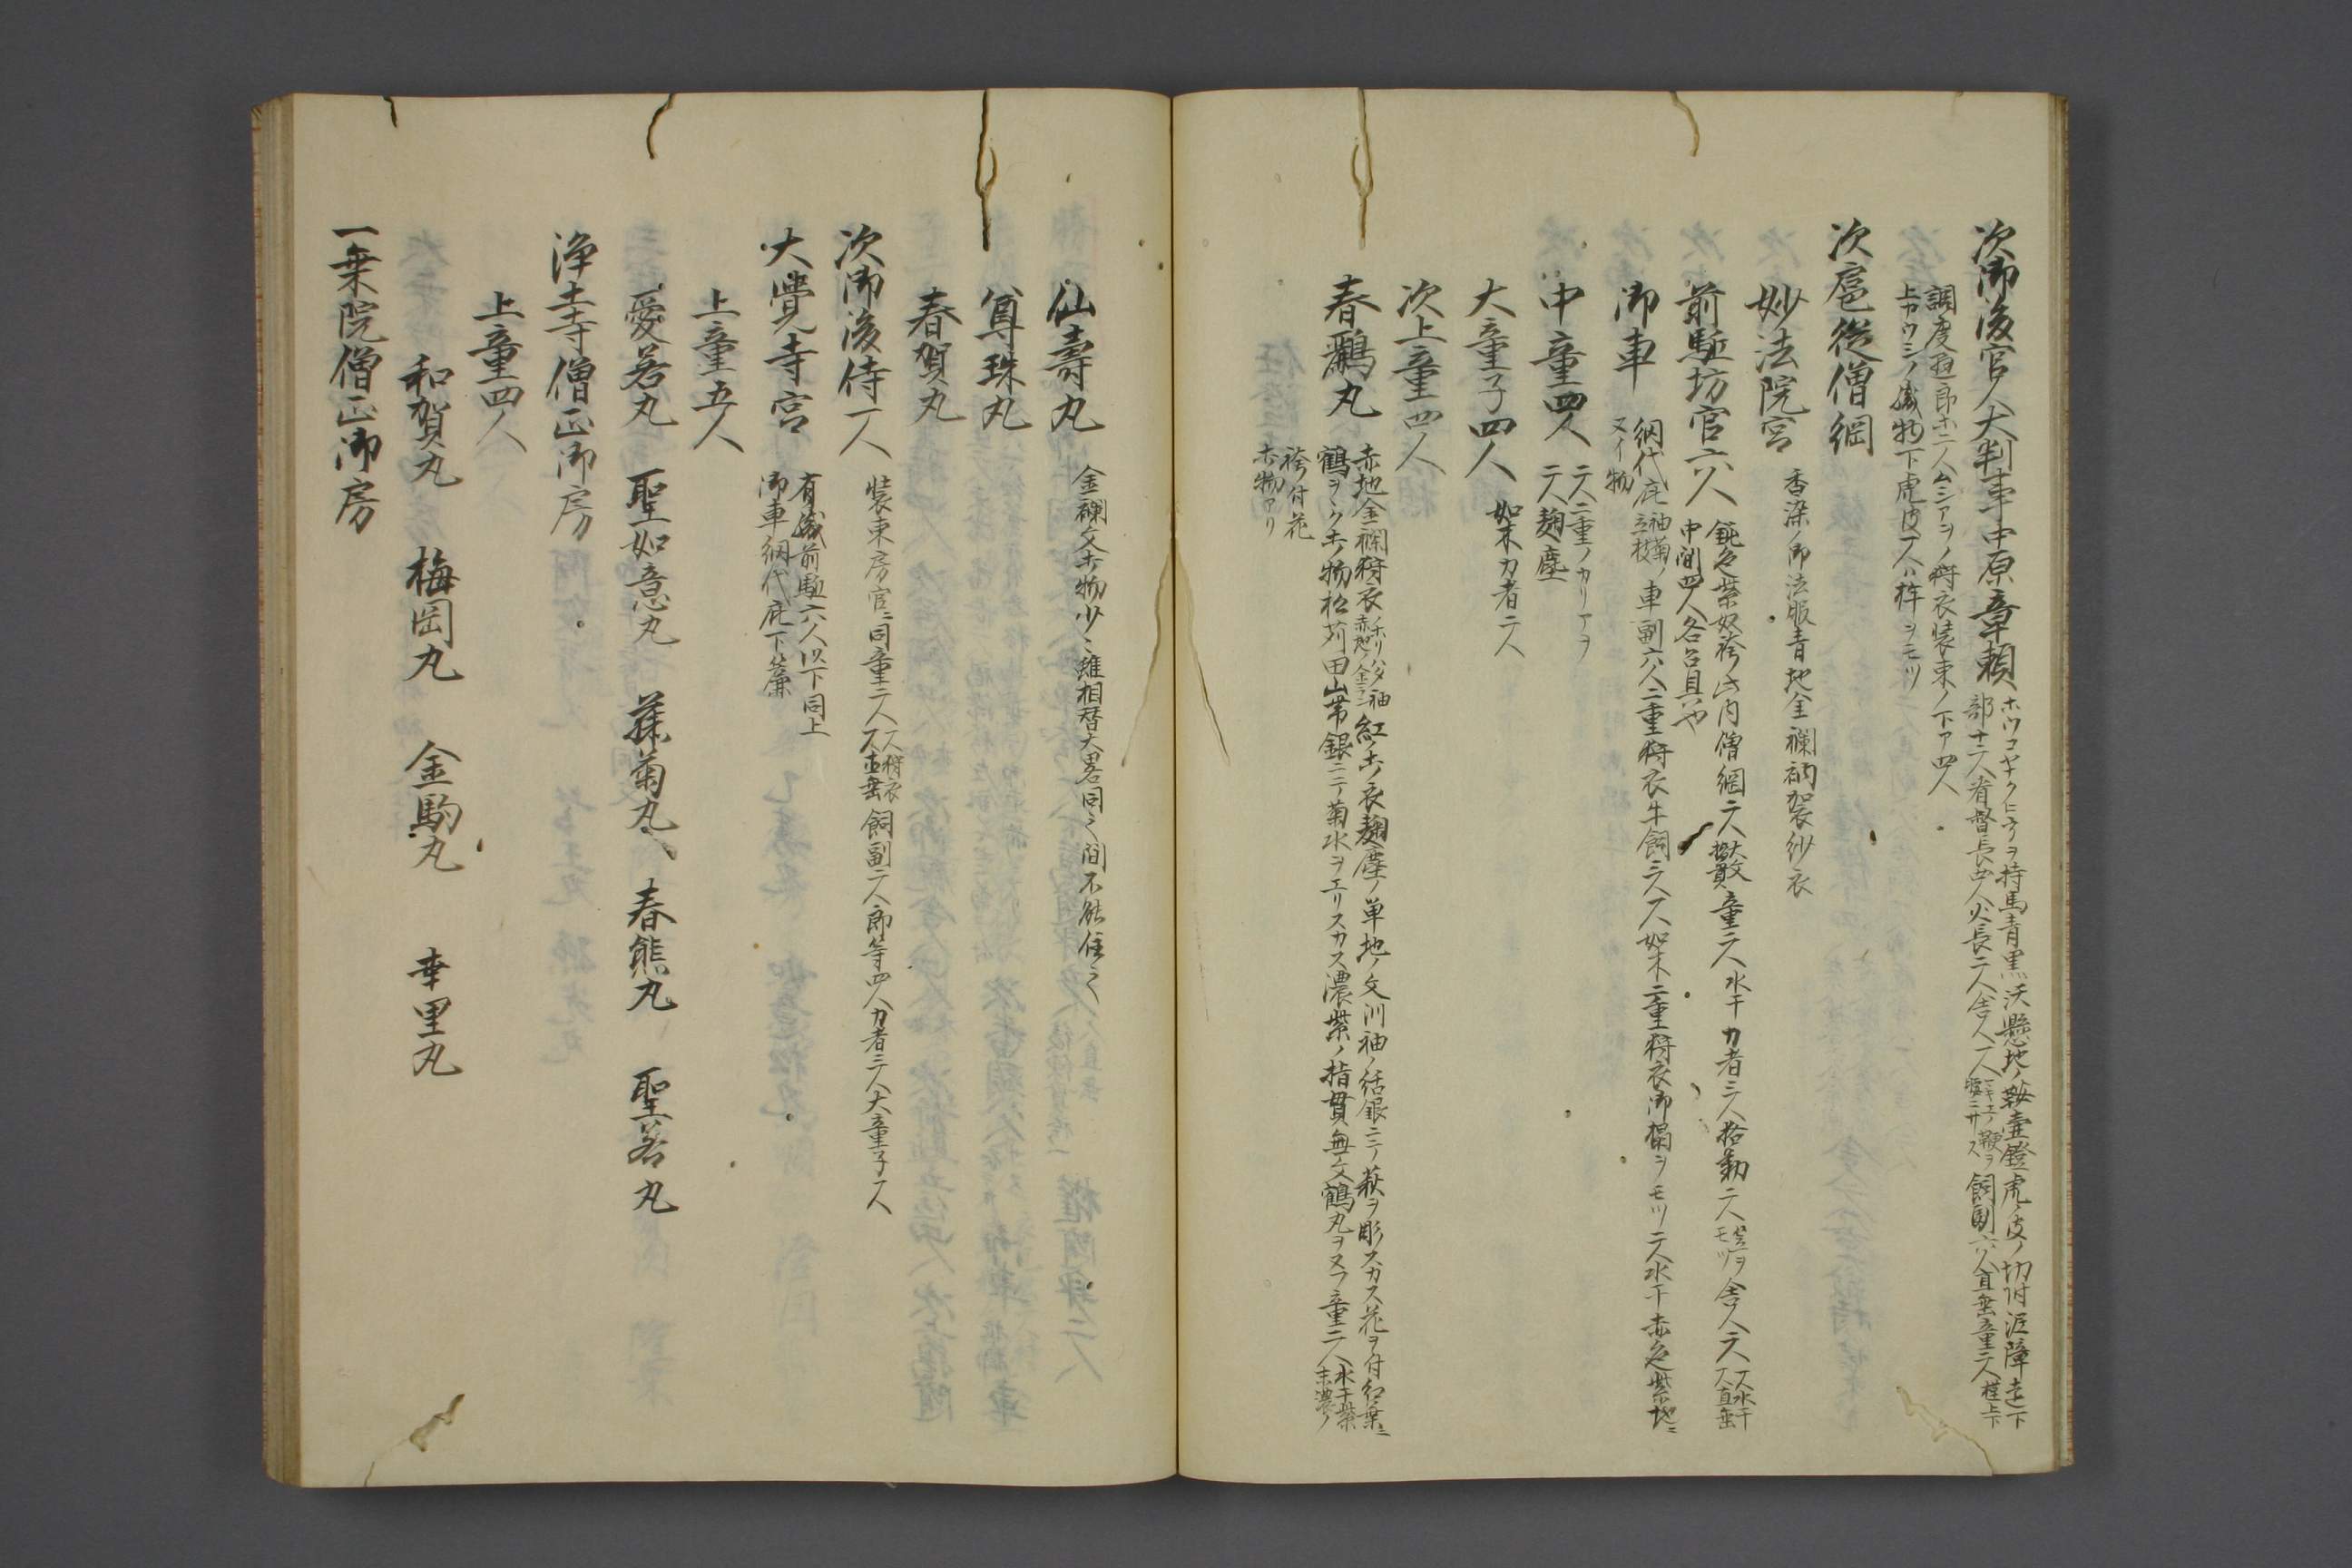 次御後官人大判事中原章頼
ホウコヤナクヒ弓ヲ持馬青黒沃懸地ノ鞍壺鐙虎皮ノ切付泥障走下
部十二人看督長四人火長二人舎人一人
腰ニサス
飼副六人直垂童二人
調度懸郎等二人ムシアヲノ狩衣装束ノ下ア四人
上カウシノ織物下虎皮一人ハ杖ヲモツ
次扈従僧綱
妙法院宮
香染ノ御法服青地金襴衲袈裟紗衣
前駈坊官六人
鈍色紫奴袴此内僧綱二人
童二人水干力者三人恪勤二人
舎人二人
一人水干
一人直垂
中間四人各召具也
御車
網代庇
袖菊ノ
立枝
車副六人二重狩衣牛飼三人一人如木二重狩衣御榻ヲモツ二人水干赤色紫地ニ
ヌイ物
中童四人
二人二重ノカリアヲ
二人麹塵
大童子四人
如木力者二人
次上童四人
春鶴丸
赤地金襴狩衣
紅ノ衣麹塵ノ単地ノ文
袖ノ括銀ニテ萩ヲ彫スカス花ヲ付紅葉ニ
鶴ヲ
物松苅田山帯銀ニテ菊水ヲエリスカス濃紫ノ指貫無文鶴丸ヲヌフ童二人
水干紫
末濃ノ
袴付花
仙壽丸
金襴文
物少々雖相替大畧同之間不能注之
尊珠丸
春賀丸
次御後侍一人
装束房官ニ同童二人
一人狩衣
一人直垂
飼副二人郎等四人力者三人大童子一人
大覺寺宮
有織前駈六人以下同上
御車網代庇下簾
上童五人
愛若丸 聖如意丸 菊丸 春熊丸 聖若丸
浄土寺僧正御房
上童四人
和賀丸 梅岡丸 金駒丸 幸里丸
一乗院僧正御房